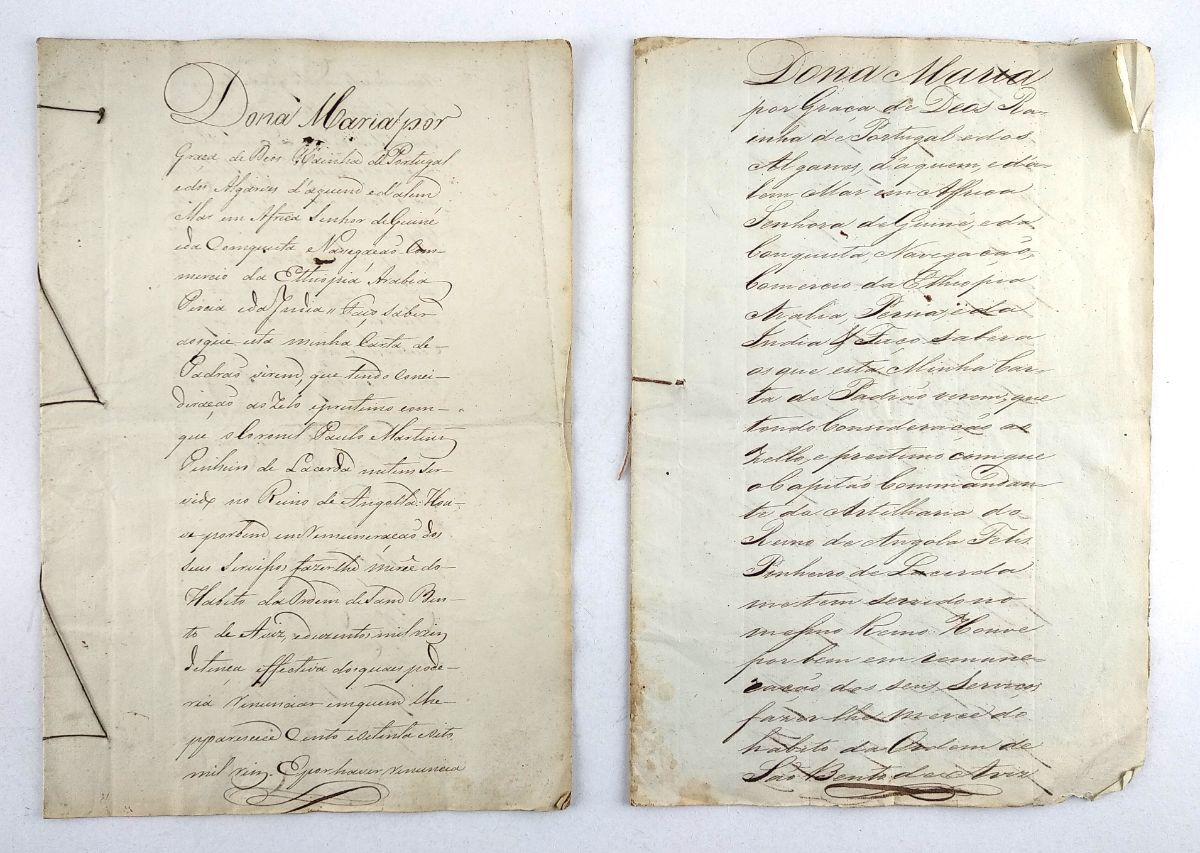 Dona Maria por
Graça de Deos Rainha de Portugal
e dos Algarves d'aquem e d'alem
Mar em Africa Senhor de Guiné
e da Comquista e Navegacaõ Com-
mercio da Ethiopia Arabia
Percia e da India " Faço saber
aos que esta minha Carta de-
Padraõ virem, que tendo Consi-
diraçaõ ao Zelo e prestimo com-
que o Coronel Paulo Martins
Pinheiro de Lacerda me tem ser-
vido no Reino de Angolla. Hou-
ve por bem em Remuneracaõ dos
seus Serviços fazer lhe mercê do
Habito da Ordem de Sam Ben-
to de Aviz, e duzentos mil reis
de tença effectiva dos quais pode-
ria renunciar em quem lhe-
pparecece Cento e setenta e sete
mil reis. E por haver renuncia
Dona Maria
por Graça de Deos Ra-
inha de Portugal e dos
Algarves, d'aquem, e d'a-
lem Mar em Affrica
Senhora de Guiné, e da
Conquista, Navegacaõ,
Comercio da Ethiopia
Arabia, Persia, e da
India & Faço saber a
os que esta Minha Car-
ta de Padraõ virem, que
tendo Consideracaõ ao
Zello, e prestimo com que
o Capitaõ Commandan-
te da Artilharia do
Reino de Angola Felis
Pinheiro de Lacerda
mo tem servido no
mesmo Reino: Houve
por bem em remune-
racaõ dos seus Serviços
fazer lhe Merce do
habito da Ordem de
Saõ Bento de Aviz